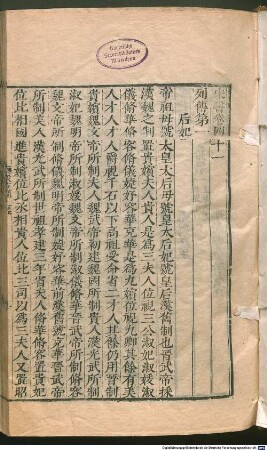 宋書卷四十一
列傳第一
后妃
帝祖母號太皇太后母號皇太后妃號皇后漢舊制也晉武帝採
漢魏之制置貴嬪夫人貴人是為三夫人位視三公淑妃淑媛淑
儀脩華脩容脩儀婕妤容華充華是為九嬪位視九卿其餘有美
人才人中才人爵視千石以下高祖受命省二才人其餘仍用晉制
貴嬪魏文帝所制夫人魏武帝初建魏國所制貴人漢光武所制
淑妃魏明帝所制淑媛魏文帝所制淑儀脩華晉武帝所制脩容
魏文帝所制脩儀魏明帝所制婕妤容華前漢舊號充華晉武帝
所制美人漢光武所制世祖孝建三年省夫人脩華脩容置貴妃
位比相國進貴嬪位比丞相貴人位比三司以為三夫人又置昭